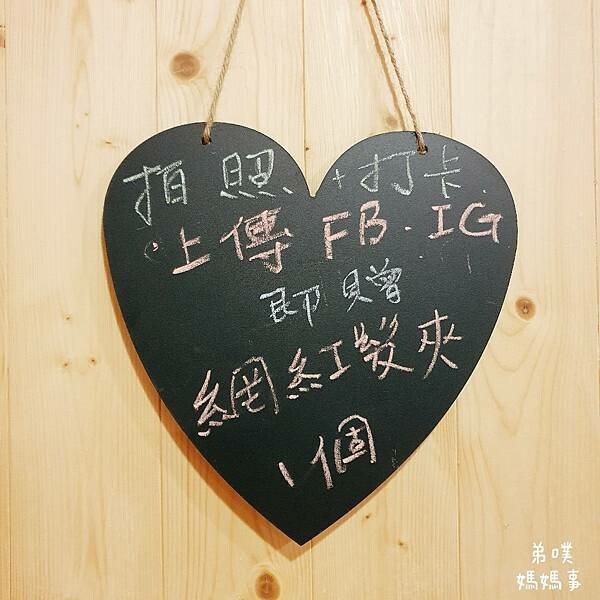 拍照+打卡
上傳FB.IG
即贈
網紅髮夾
1個
弟噗
媽媽事